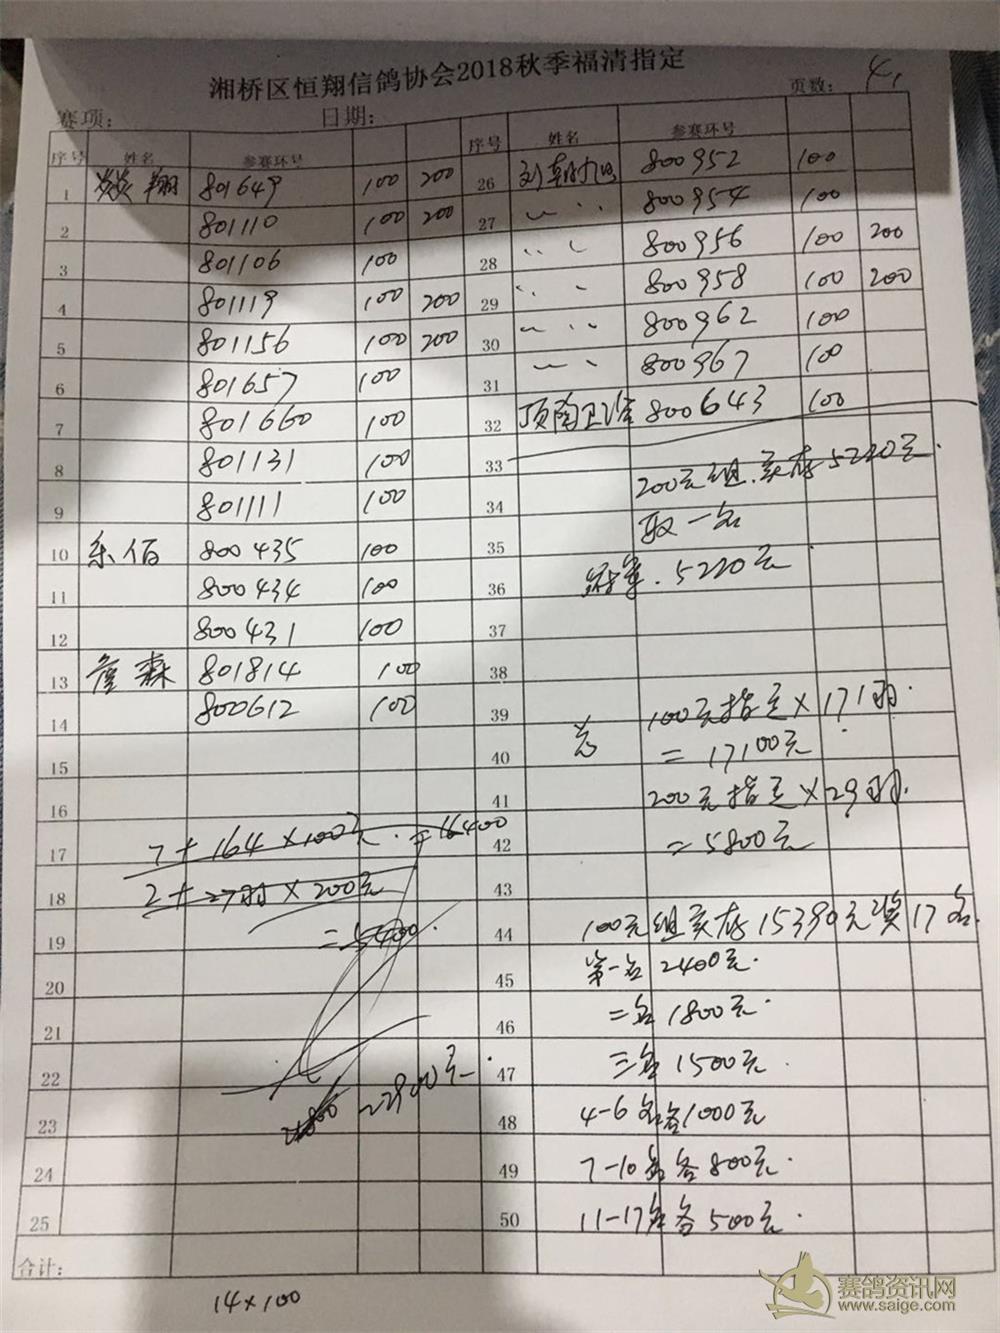 湘桥区恒翔信鸽协会2018秋季福清指定
赛项： 日期： 页数： 4.
序号 姓名 参赛环号
1 焱焱翔 801649 100 200
2 801110 100 200
3 801106 100
4 801119 100 200
5 801156 100 200
6 801657 100
7 801660 100
8 801131 100
9 801111 100
10 乐佰 800435 100
11 800434 100
12 800431 100
13 詹森 801814 100
14 800612 100
15
16
17 7+164×100元.=16400
18 2+27羽×200元
19 =5400.
20
21
22
23 22900元.
24
25
合计：
14×100
序号 姓名 参赛环号
26 刘朝旭 800952 100
27 〃 〃 800954 100
28 〃 〃 800956 100 200
29 〃 〃 800958 100 200
30 〃 〃 800962 100
31 〃 〃 800967 100
32 顶南卫浴 800643 100
33
34 200元组.实存5220元.
35 取一名
36 冠军.5220元
37
38
39 100元指定×171羽.
40 总 =17100元
41 200元指定×29羽.
42 =5800元
43
44 100元组实存15390元奖17名.
45 第一名2400元.
46 二名1800元.
47 三名1500元.
48 4-6名各1000元
49 7-10名各800元.
50 11-17名各500元.
赛鸽资讯网
www.saige.com